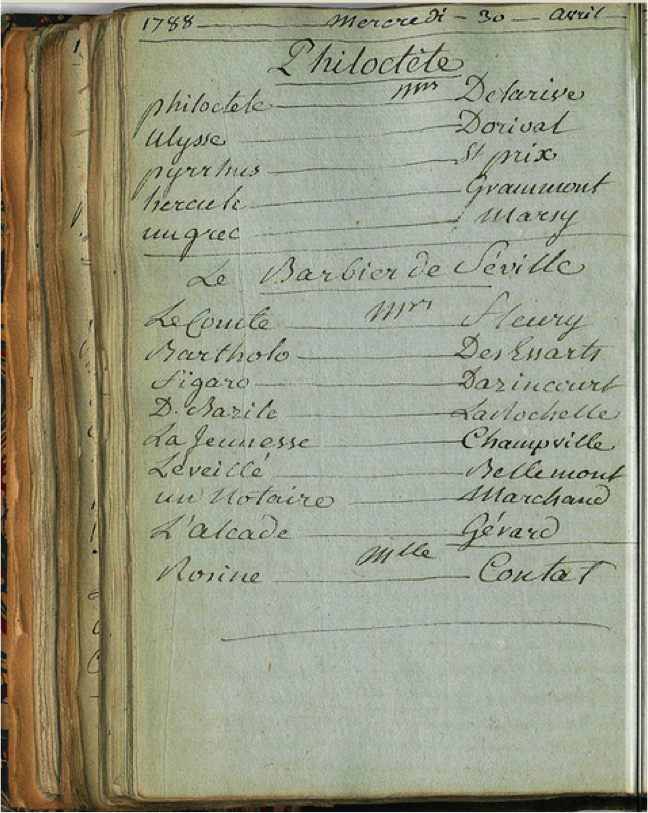 1788 Mercredi - 30 Avril
Philoctète
Mrs
philoctete Delarive
Ulysse Dorival
pyrrhus St prix
hercule Grammont
un grec Marsy
Le Barbier de Séville
Mrs
Le Comte Fleury
Bartholo DesEssarts
Figaro Dazincourt
D. Bazile LaRochelle
La Jeunesse Champville
Léveillé Bellemont
un Notaire Marchand
L'alcade Gérard
Mlle
Rosine Contat